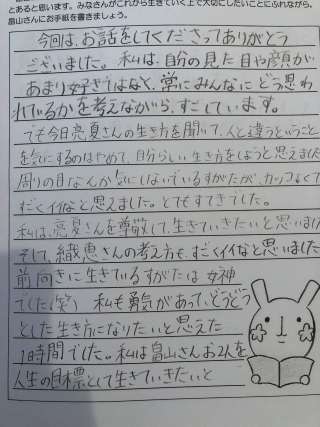 とあると思います。みなさんがこれから生きていく上で大切にしたいことにふれながら、
畠山さんにお手紙を書きましょう。
今回は、お話をしてくださってありがとう
ございました。私は、自分の見た目や顔が
あまり好きではなく、常にみんなにどう思わ
れているかを考えながら、すごしています。
でも今日亮夏さんの生き方を聞いて、人と違うということ
を気にするのはやめて、自分らしい生き方をしようと思えました
周りの目なんか気にしないでいるすがたが、カッコよくて
すごくイイなと思えました。とてもすてきでした。
私は、亮夏さんを尊敬して、生きていきたいと思いまし
そして、織恵さんの考え方も、すごくイイなと思いました
前向きに生きているすがたは 女神
でした(笑) 私も勇気があって、どうどう
とした生き方になりたいと思えた
1時間でした。私は畠山さんお2人を
人生の目標として生きていきたいと